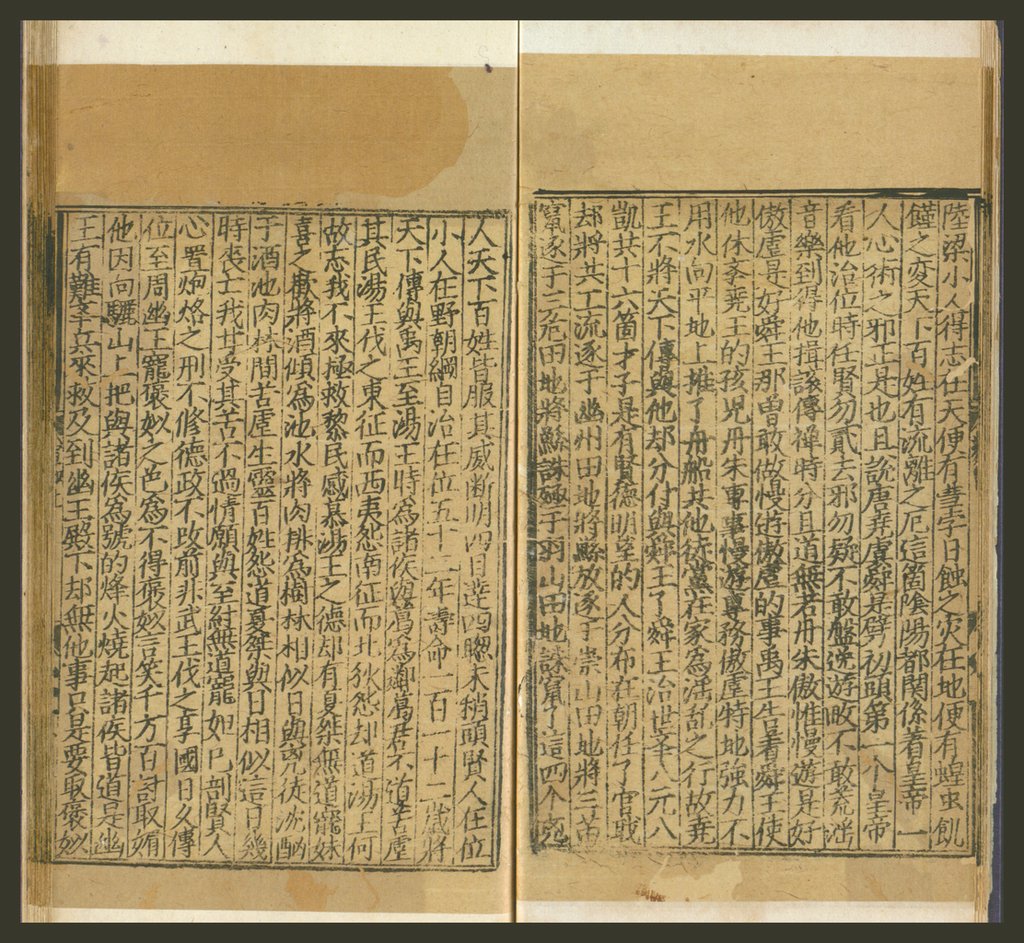 陸梁小人得志在天便有彗孛日蝕之灾在地便有蝗虫飢
饉之变天下百姓有流離之厄這箇隂陽都関係着皇帝一
人心術之邪正是也且說唐堯虞舜是劈初頭第一个皇帝
看他治位時任賢勿貳去邪勿疑不敢盤遊畋不敢荒滛
音樂到得他揖遜傳禪時分且道無若丹朱傲惟慢遊是好
傲虐是好舜王那曽敢做慢遊傲虐的事禹王告着舜王使
他休李堯王的孩兒丹朱專事慢遊專務傲虐特地強力不
用水向平地上推了舟船共他徒黨在家為滛乱之行故堯
王不將天下傳與他却分付與舜王了舜王治世李八元八
凱共十六箇才子是有賢德明望的人分布在朝任了官戝
却將共工流逐于幽州田地將放逐于崇山田地將三苗
竄逐于三危田地將鯀誅殛于羽山田地誅竄了這四个㐫
人天下百姓皆服其威断明四目達四聦末梢頭賢人在位
小人在野朝綱自治在位五十二年壽命一百一十二歳將
天下傳與禹王至湯王時為諸侯為鄰葛君不道苦虐
其民湯王伐之東征而西夷怨南征而北狄怨却道湯王何
故忘我不來極救黎民感慕湯王之德却有夏桀無道寵妹
喜之將酒傾為池水將肉排為樹林相似日與兇徒沈酗
于酒池肉林間苦虐生靈百姓怨道夏桀與日相似這日幾
時喪亡我甘受其苦不過情願與至紂無道寵妲己剖賢人
心置炮烙之刑不修德政不改前非武王伐之享國日久傳
位至周幽王寵褒姒之色為不得褒姒言笑千方百討取媚
他因向驪山上把與諸侯為號的烽火燒起諸侯皆道是幽
王有難李兵來救及到幽王殿下却無他事只是要取褒姒